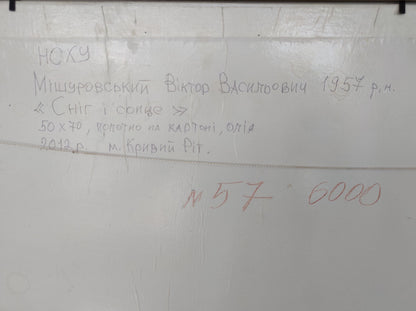 НСХУ
Мішуровський Віктор Васильович 1957 р.н.
« Сніг і сонце »
50х70, полотно на картоні, олія
2012 р. м. Кривий Ріг.
№57 6000